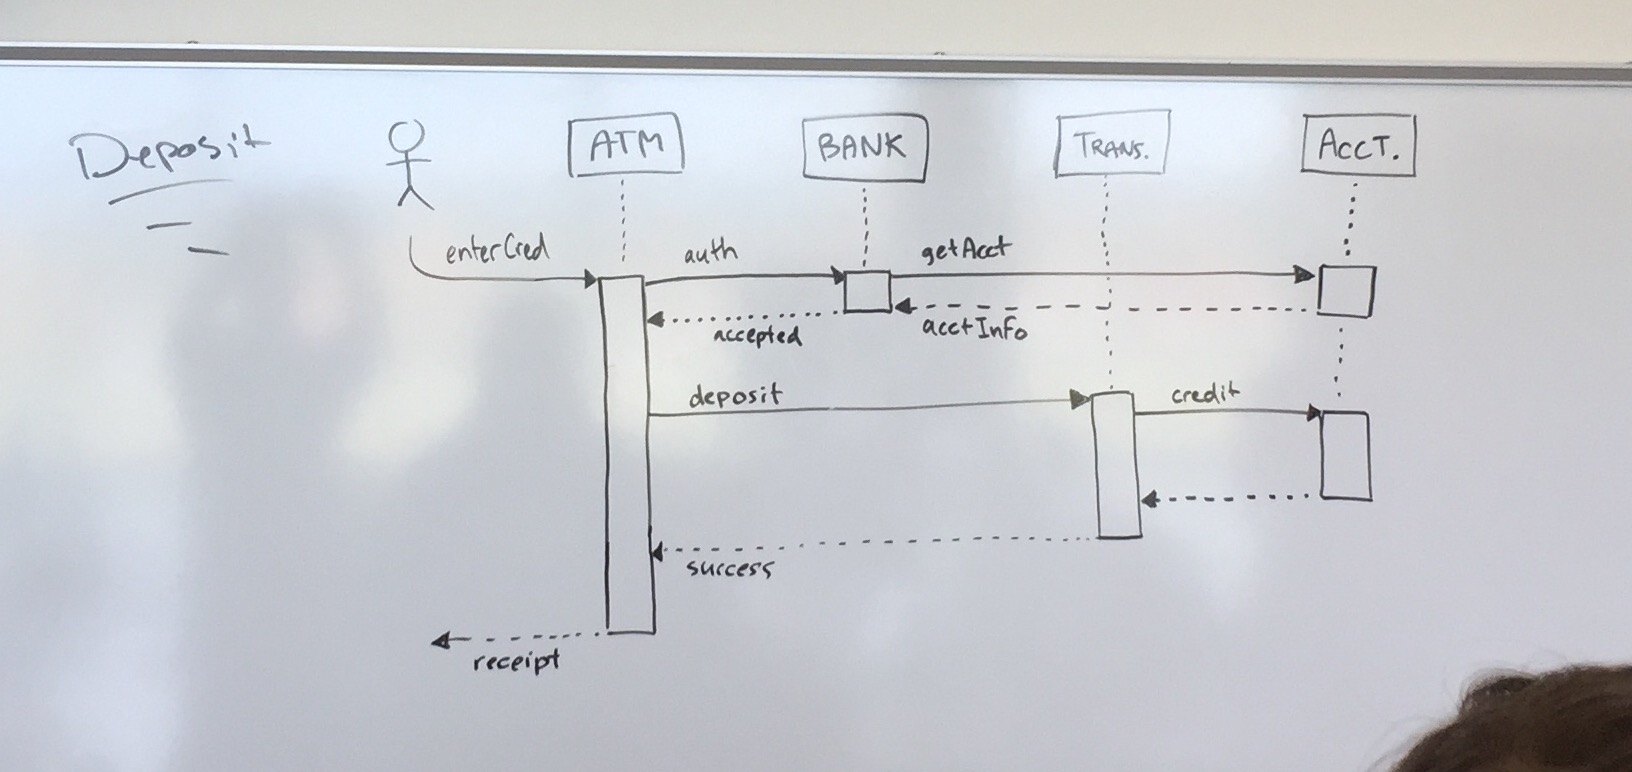 Deposit
ATM
BANK
TRANS.
ACCT.
enterCred
auth
getAcct
accepted
acctInfo
deposit
credit
success
receipt